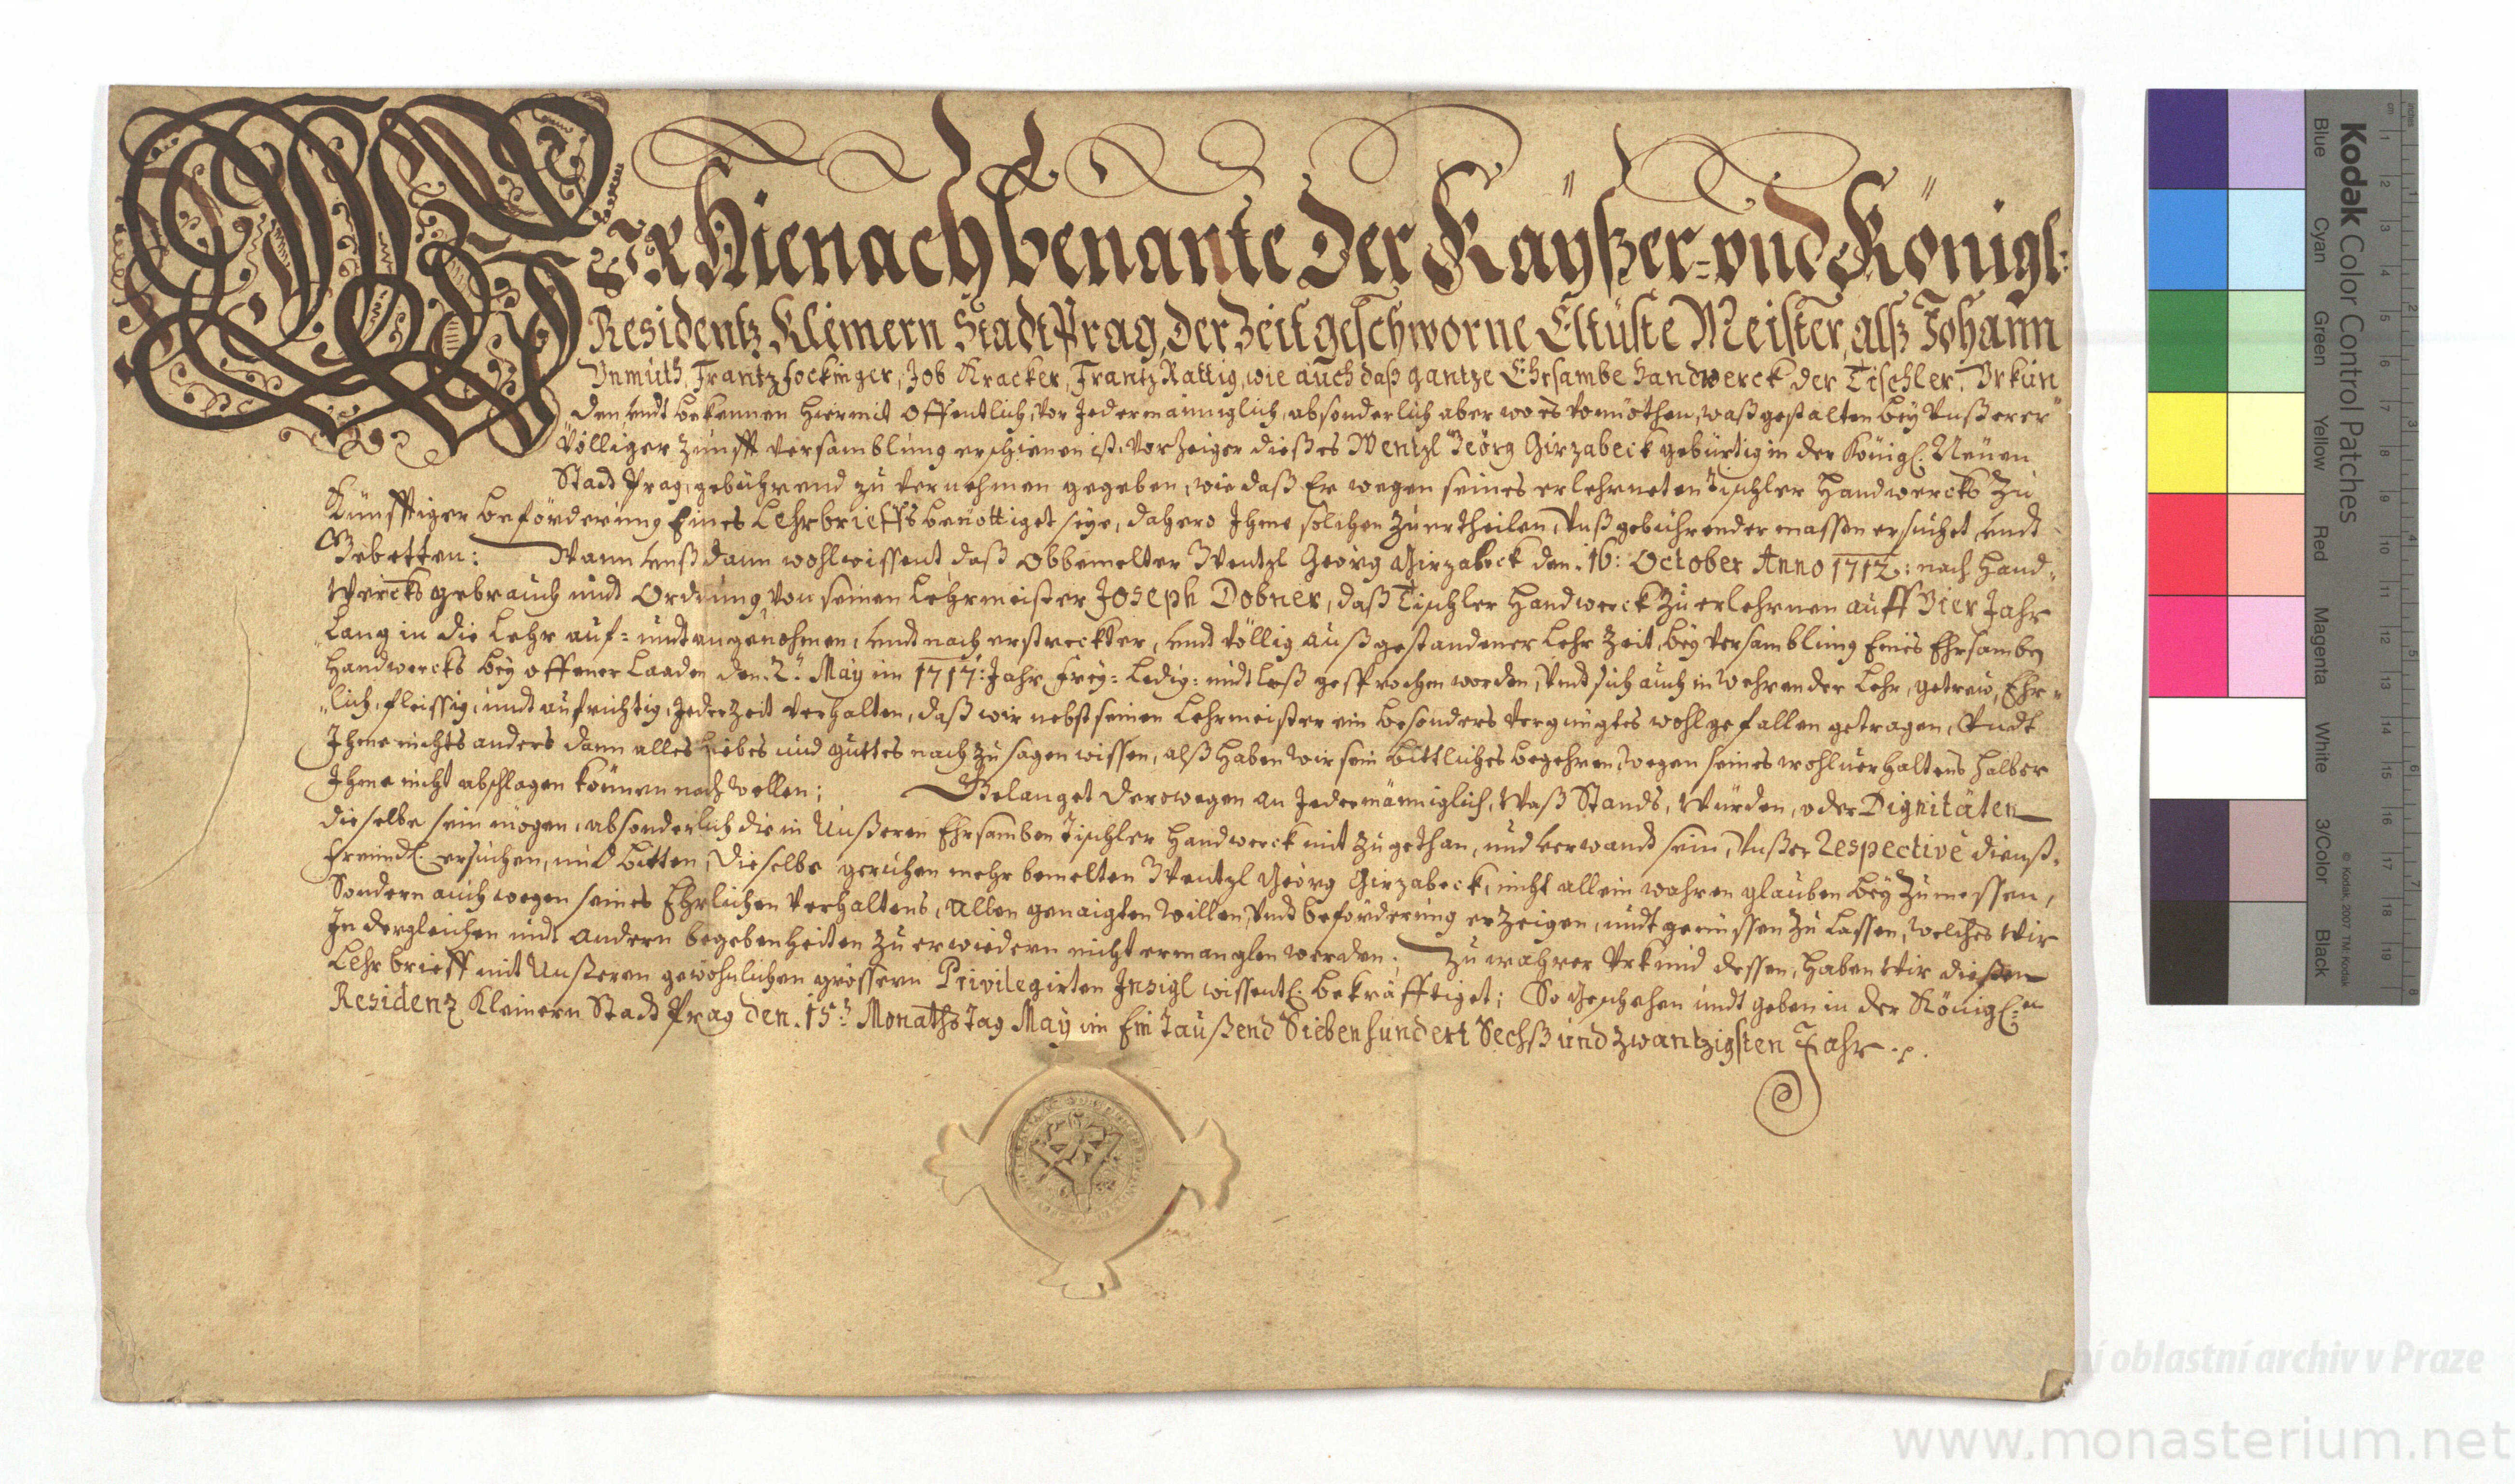 WIR Hienach benante Der Kaÿßer= vnd Königl:
Residentz Kleinern Stadt Prag, der Zeit geschworne Eltüste Meister, alß Johann
Vnmuth, Frantz Fockinger, Job Kracker, Frantz Rattig, wie auch daß gantze Ehrsambe Handwerck der Tischler. Vrkun
den, undt bekennen hiermit offentlich, vor Jedermänniglich, absonderlich aber wo es vonnöthen, waß gestalten bey Vnßerer
Völliger Zunfft Versamblung erschienen ist, Vorzeiger dießes Wentzl Georg Girzabeck gebürtig in der Königl. Neuen
Stadt Prag, gebührend zu vernehmen gegeben, wie daß Er wegen seines erlehrneten Tischler Handwercks zu
Künfftiger beförderung Eines Lehrbrieffs benöttiget seye, dahero Ihme solchen zu ertheilen, Vnß gebührender massen ersuchet undt
Gebetten: Wann unß dann wohlwissent daß obbemelter Wentzl Georg Girzabeck den 16: October Anno 1712: nach Hand„
Wercks gebrauch undt Ordnung, von seinen Lehrmeister Joseph Dobner, daß Tischler Handwerck zu erlehrnen auff Vier Jahr
Lang in die Lehr auf= undt angenohmen, undt nach erstreckter, undt völlig außgestandener Lehr Zeit, bey Versamblung Eines Ehrsamben
Handwercks bey offener Laaden den 2. May im 1717: Jahr frey= Ledig= undt Loß gesprochen worden, Undt sich auch in wehrender Lehr, getrew, Ehr„
„lich, fleissig, undt aufrichtig, Jederzeit verhalten, daß wir nebst seinen Lehrmeister ein besonders vergnügtes wohlgefallen getragen, Undt
Ihme nichts anders dann alles Liebes und guttes nach zu sagen wissen, alß haben wir sein bittliches begehren, wegen seines wohlverhaltens halber
Ihme nicht abschlagen können noch wollen; Gelanget derowegen an Jedermänniglich, Waß Stands, Würden, oder Dignitäten
dieselbe sein mögen, absonderlich die in Unßeren Ehrsamben Tischler Handwerck mit zugethan, und verwandt sein, Vnßer Respective dienst„
freundl. ersuchen, und bitten, Dieselbe geruhen mehr bemelten Wentzl Georg Girzabeck, nicht allein wahren glauben bey zumessen,
Sondern auch wegen seines Ehrlichen Verhaltens, Allen genaigten Willen, Undt beförderung erzeigen, undt genüssen zu Lassen, welches Wir
In dergleichen undt andern begebenheiten zu erwiedern nicht ermanglen werden; Zu wahrer Urkund dessen, haben Wir dießen
Lehrbrieff mit Unßeren gewöhnlichen grössern Privilegirten Insigl wissentl: bekräfftiget; So geschehen undt geben in der Königl:en
Residenz Kleinern Stadt Prag den 15: Monaths Tag May im Ein Taußend Siebenhundert Sechß und zwantzigsten Jahr
Kodak Color Control Patches
© Kodak, 2007 TM: Kodak
Blue Cyan Green Yellow Red Magenta White 3/Color Black
cm 1 2 3 4 5 6 7 8 9 10 11 12 13 14 15 16 17 18 19
inches 1 2 3 4 5 6 7 8
oblastní archiv v Praze
www.monasterium.net